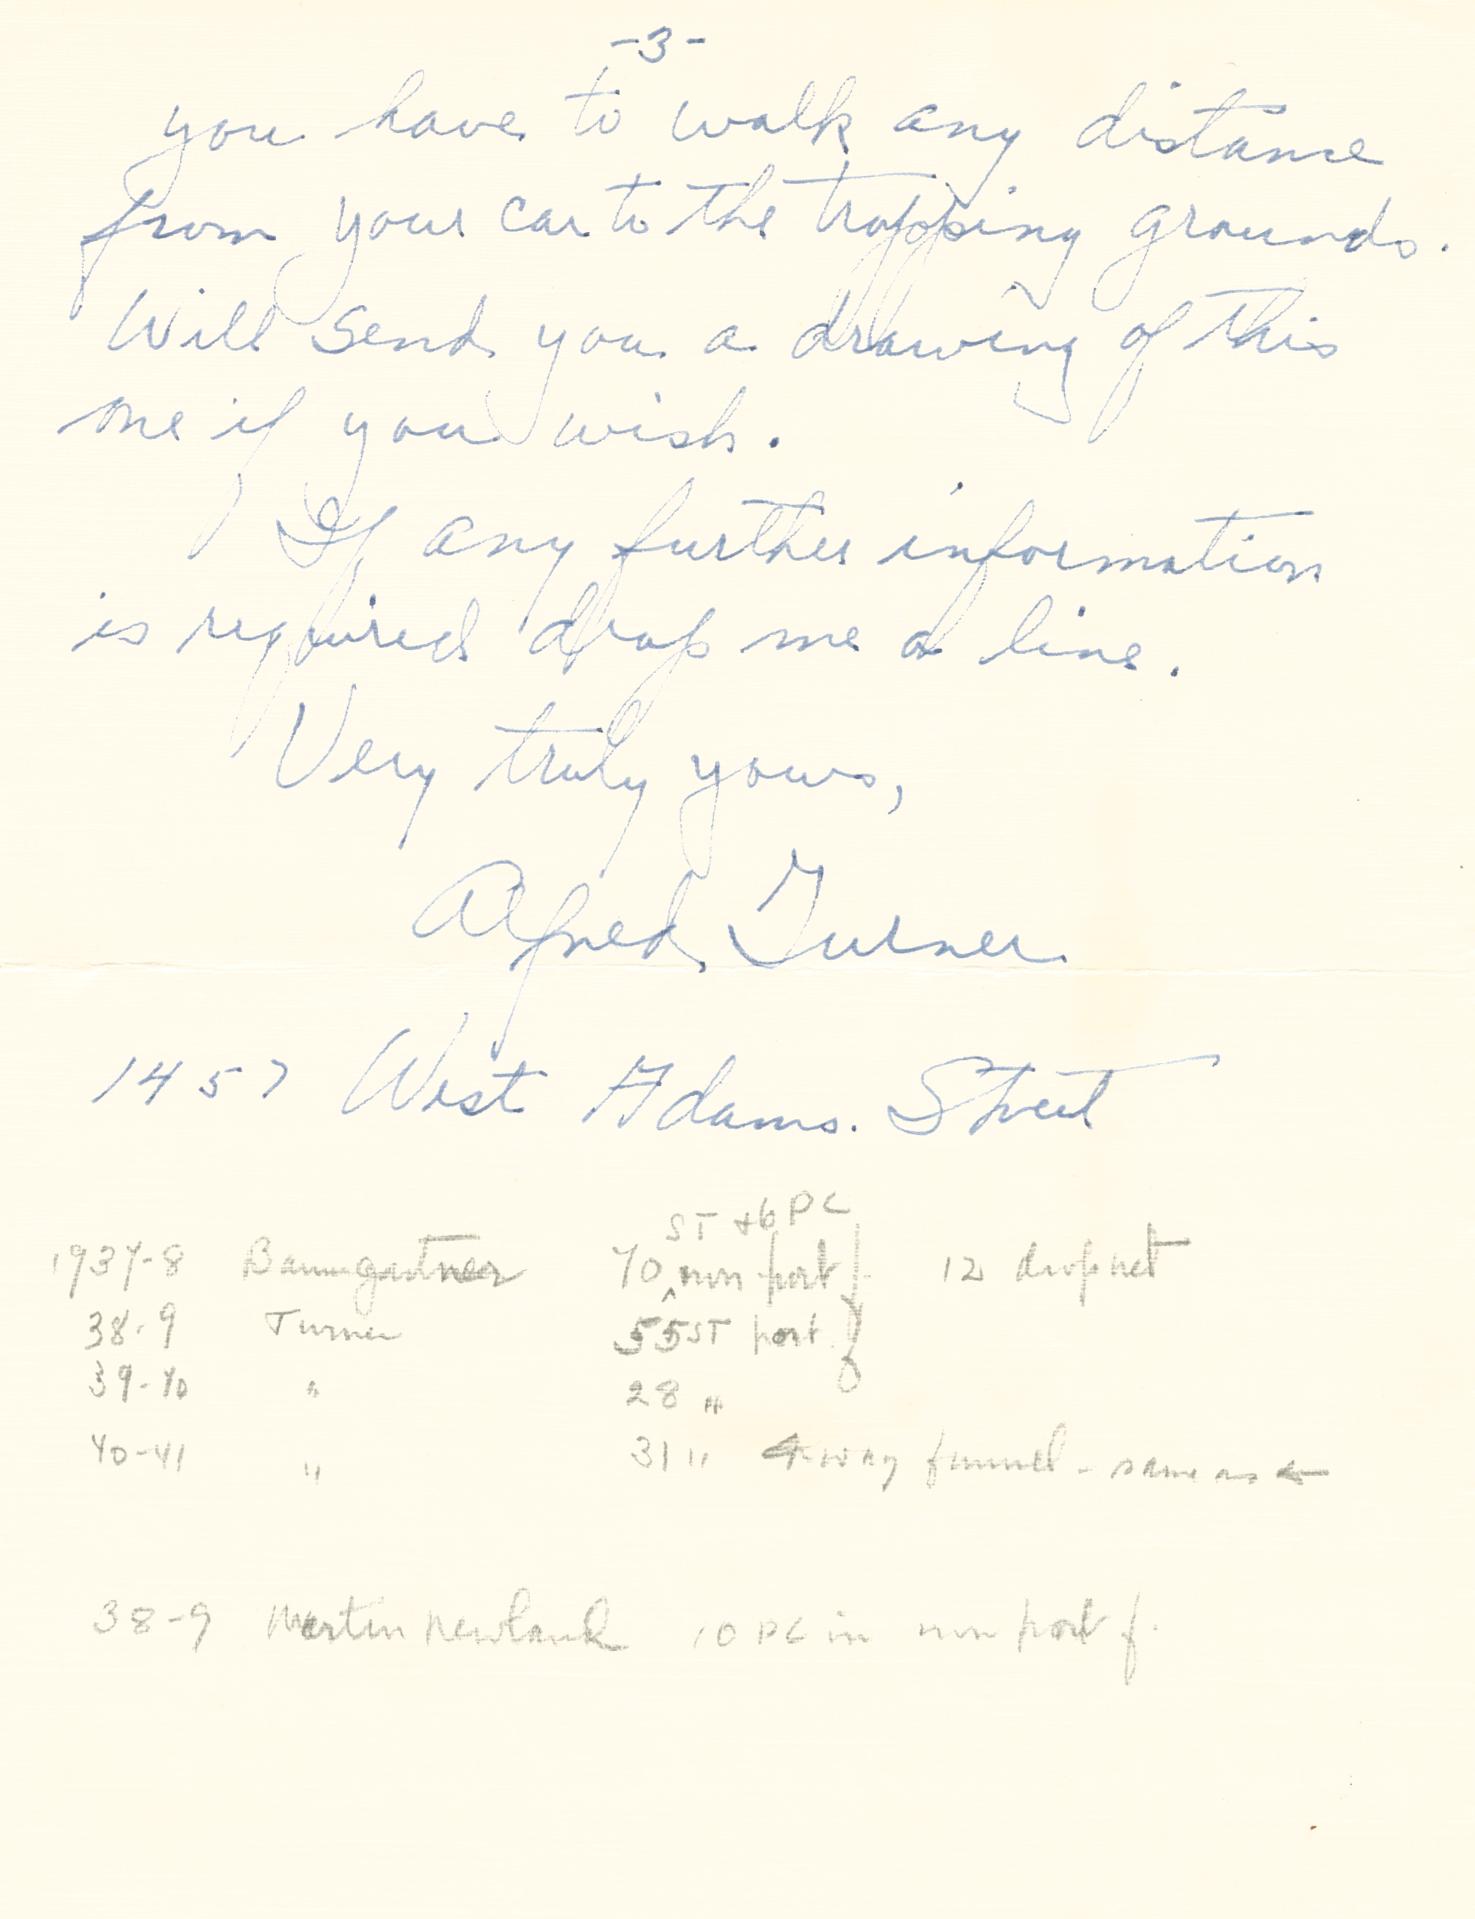 -3-
you have to walk any distance
from your car to the trapping grounds.
Will send you a drawing of this
one if you wish.
If any further information
is required drop me a line.
Very truly yours,
Alfred Turner
1457 West Adams. Street
ST + 6 PC
1937-8 Baumgartner 70 ^ non-port f. 12 drop net
38-9 Turner 55 ST port. f
39-40 " 28 "
40-41 " 31 " 4-way funnel - same as ←
38-9 Martin Newland 10 PC in non port f.